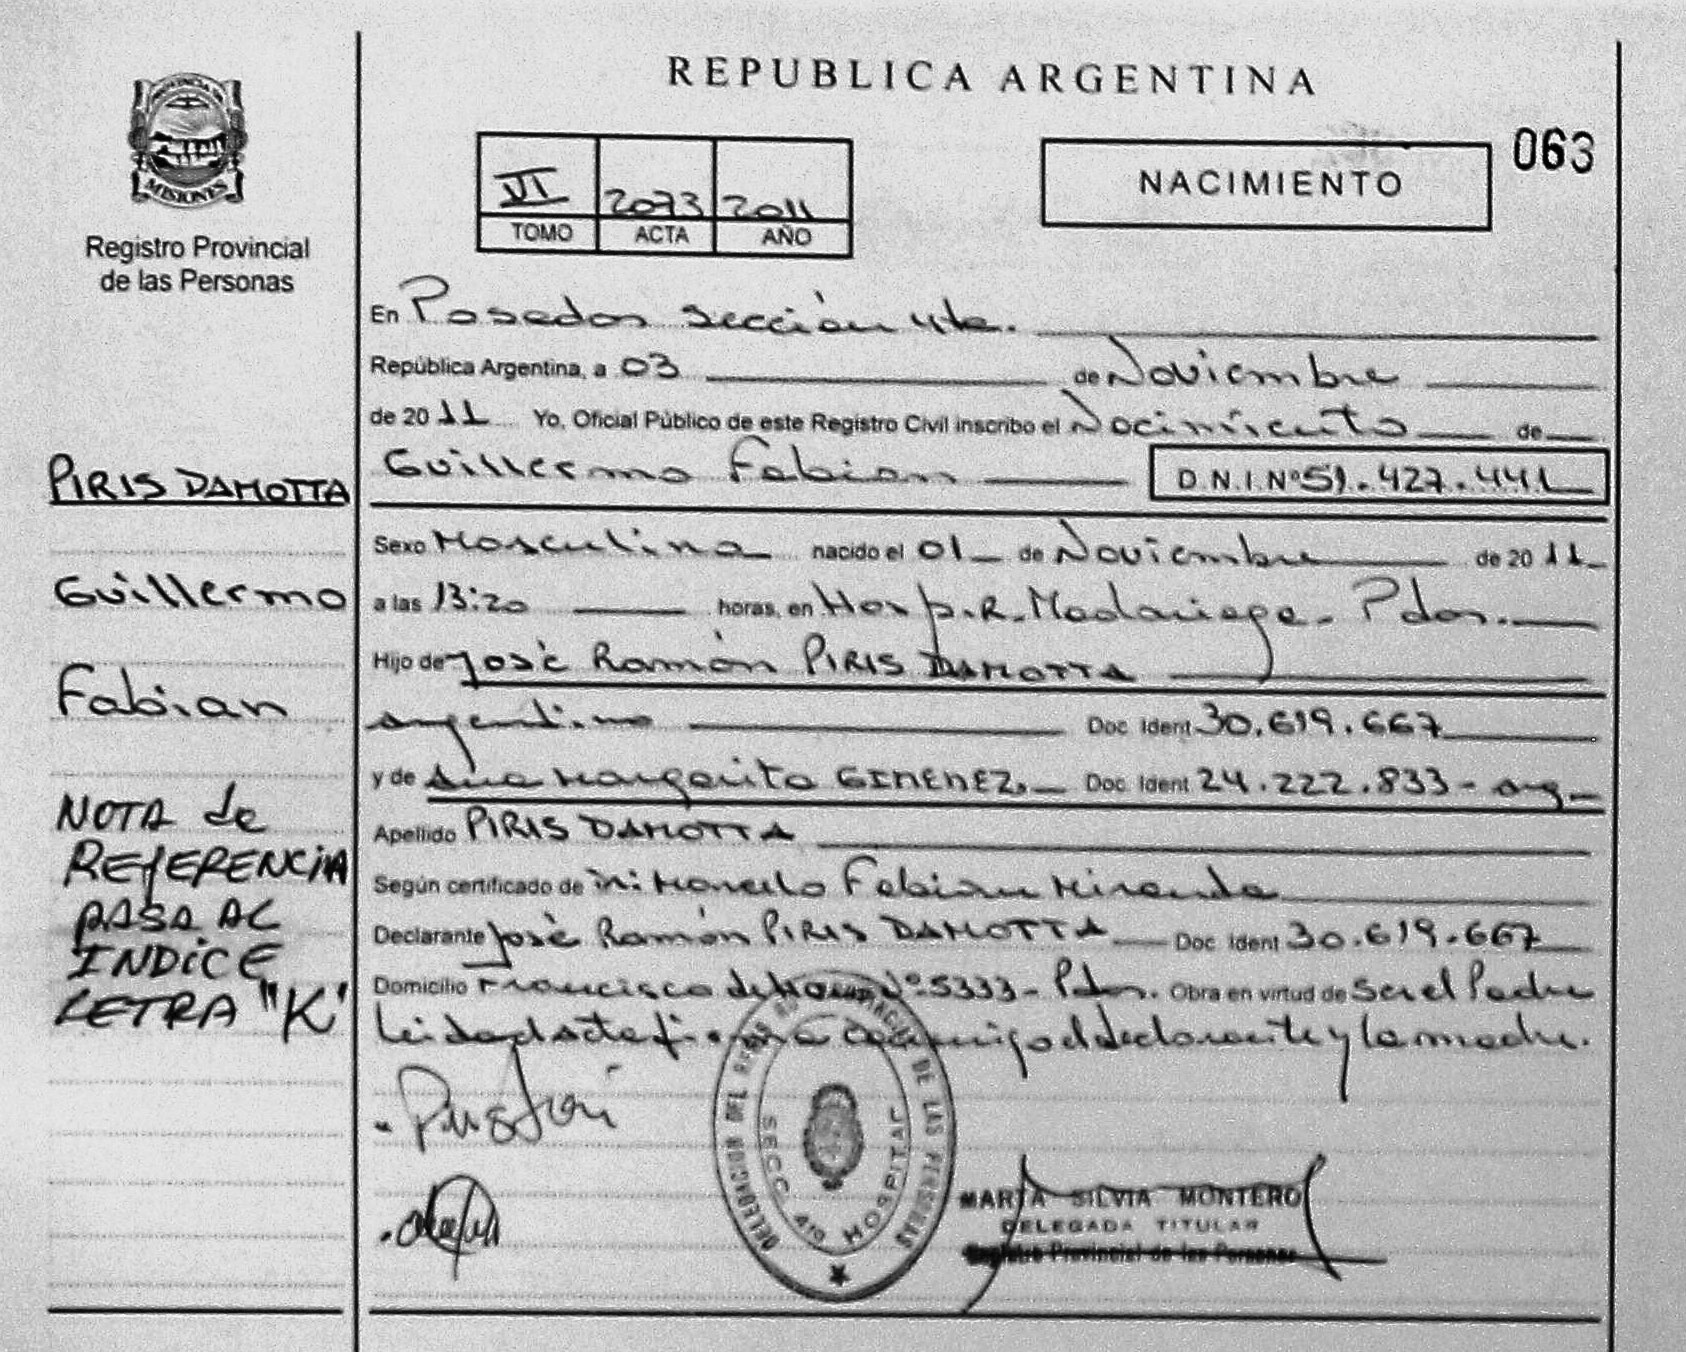 REPUBLICA ARGENTINA
MISIONES
Registro Provincial
de las Personas
VI 2073 2011
TOMO ACTA AÑO
NACIMIENTO
063
En Posadas sección 4ta.
República Argentina, a 03 de Noviembre
de 2011 Yo, Oficial Público de este Registro Civil inscribo el Nacimiento de
Guillermo Fabian D.N.I.Nº 51.427.441
Sexo Masculino nacido el 01 de Noviembre de 2011
a las 13:20 horas, en Hosp. R. Madariaga - Pdas.
Hijo de José Ramón PIRIS DAMOTTA
argentino Doc Ident 30.619.667
y de Ana Margarita GIMENEZ. Doc Ident 24.222.833 - arg
Apellido PIRIS DAMOTTA
Según certificado de Marcelo Fabian Miranda
Declarante José Ramón PIRIS DAMOTTA Doc Ident 30.619.667
Domicilio Francisco de Nº 5333 - Pdas. Obra en virtud de Ser el Padre
Leida el acta firma conmigo el declarante y la madre.
PIRIS DAMOTTA
Guillermo
Fabian
NOTA de
REFERENCIA
PASA AL
INDICE
LETRA "K"
DELEGACION DEL REGISTRO PROVINCIAL DE LAS PERSONAS
SECC. 4ta HOSPITAL
MARIA SILVIA MONTERO
DELEGADA TITULAR
Registro Provincial de las Personas